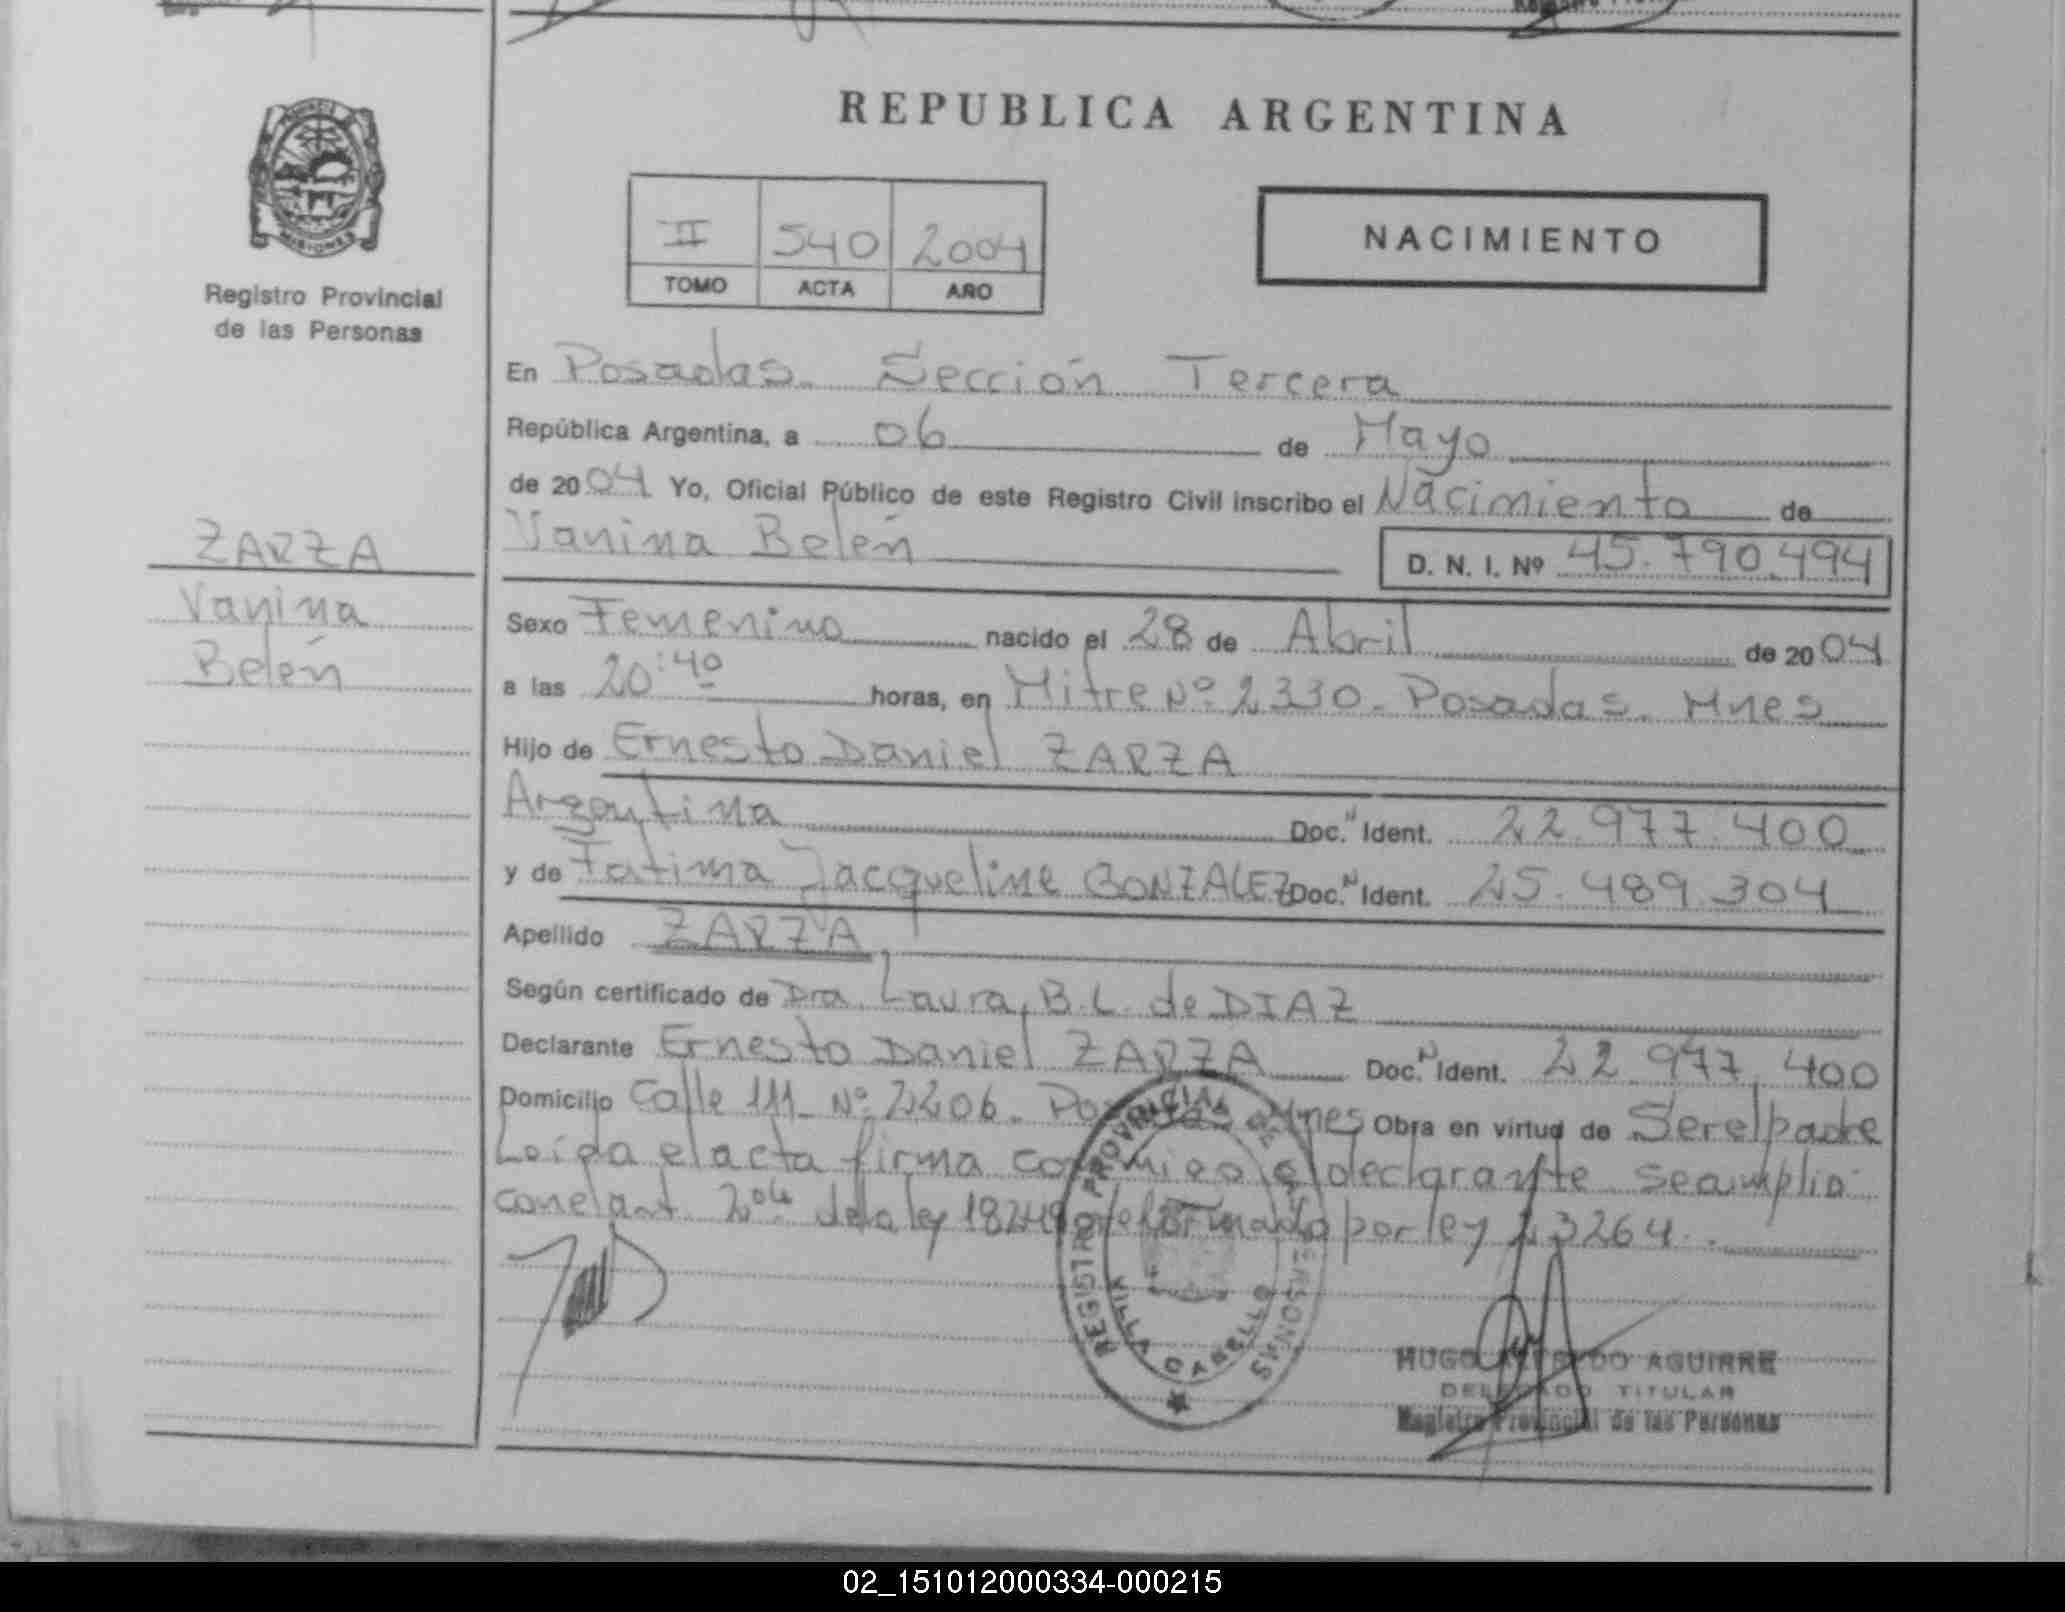 REPUBLICA ARGENTINA
MISIONES
Registro Provincial
de las Personas
II 540 2004
TOMO ACTA AÑO
NACIMIENTO
En Posadas. Sección Tercera
República Argentina, a 06 de Mayo
de 2004 Yo, Oficial Público de este Registro Civil inscribo el Nacimiento de
Vanina Belén D. N. I. Nº 45.790.494
ZARZA
Vanina
Belén
Sexo Femenino nacido el 28 de Abril de 2004
a las 20:40 horas, en Mitre Nº 2330. Posadas. Mnes
Hijo de Ernesto Daniel ZARZA
Argentina Doc. N Ident. 22.977.400
y de Fatima Jacqueline GONZALEZ Doc. N Ident. 25.489.304
Apellido ZARZA
Según certificado de Dra. Laura, B.L. de DIAZ
Declarante Ernesto Daniel ZARZA Doc. N Ident. 22.977.400
Domicilio Calle 111 Nº 2206. Posadas Mnes Obra en virtud de Ser el padre
Leída el acta firma conmigo el declarante. se amplia
con el art. 2do de la ley 18248 reformado por ley 23264.
REGISTRO PROVINCIAL DE LAS PERSONAS
VILLA CABELLO
HUGO ALFREDO AGUIRRE
DELEGADO TITULAR
Registro Provincial de las Personas
02_151012000334-000215